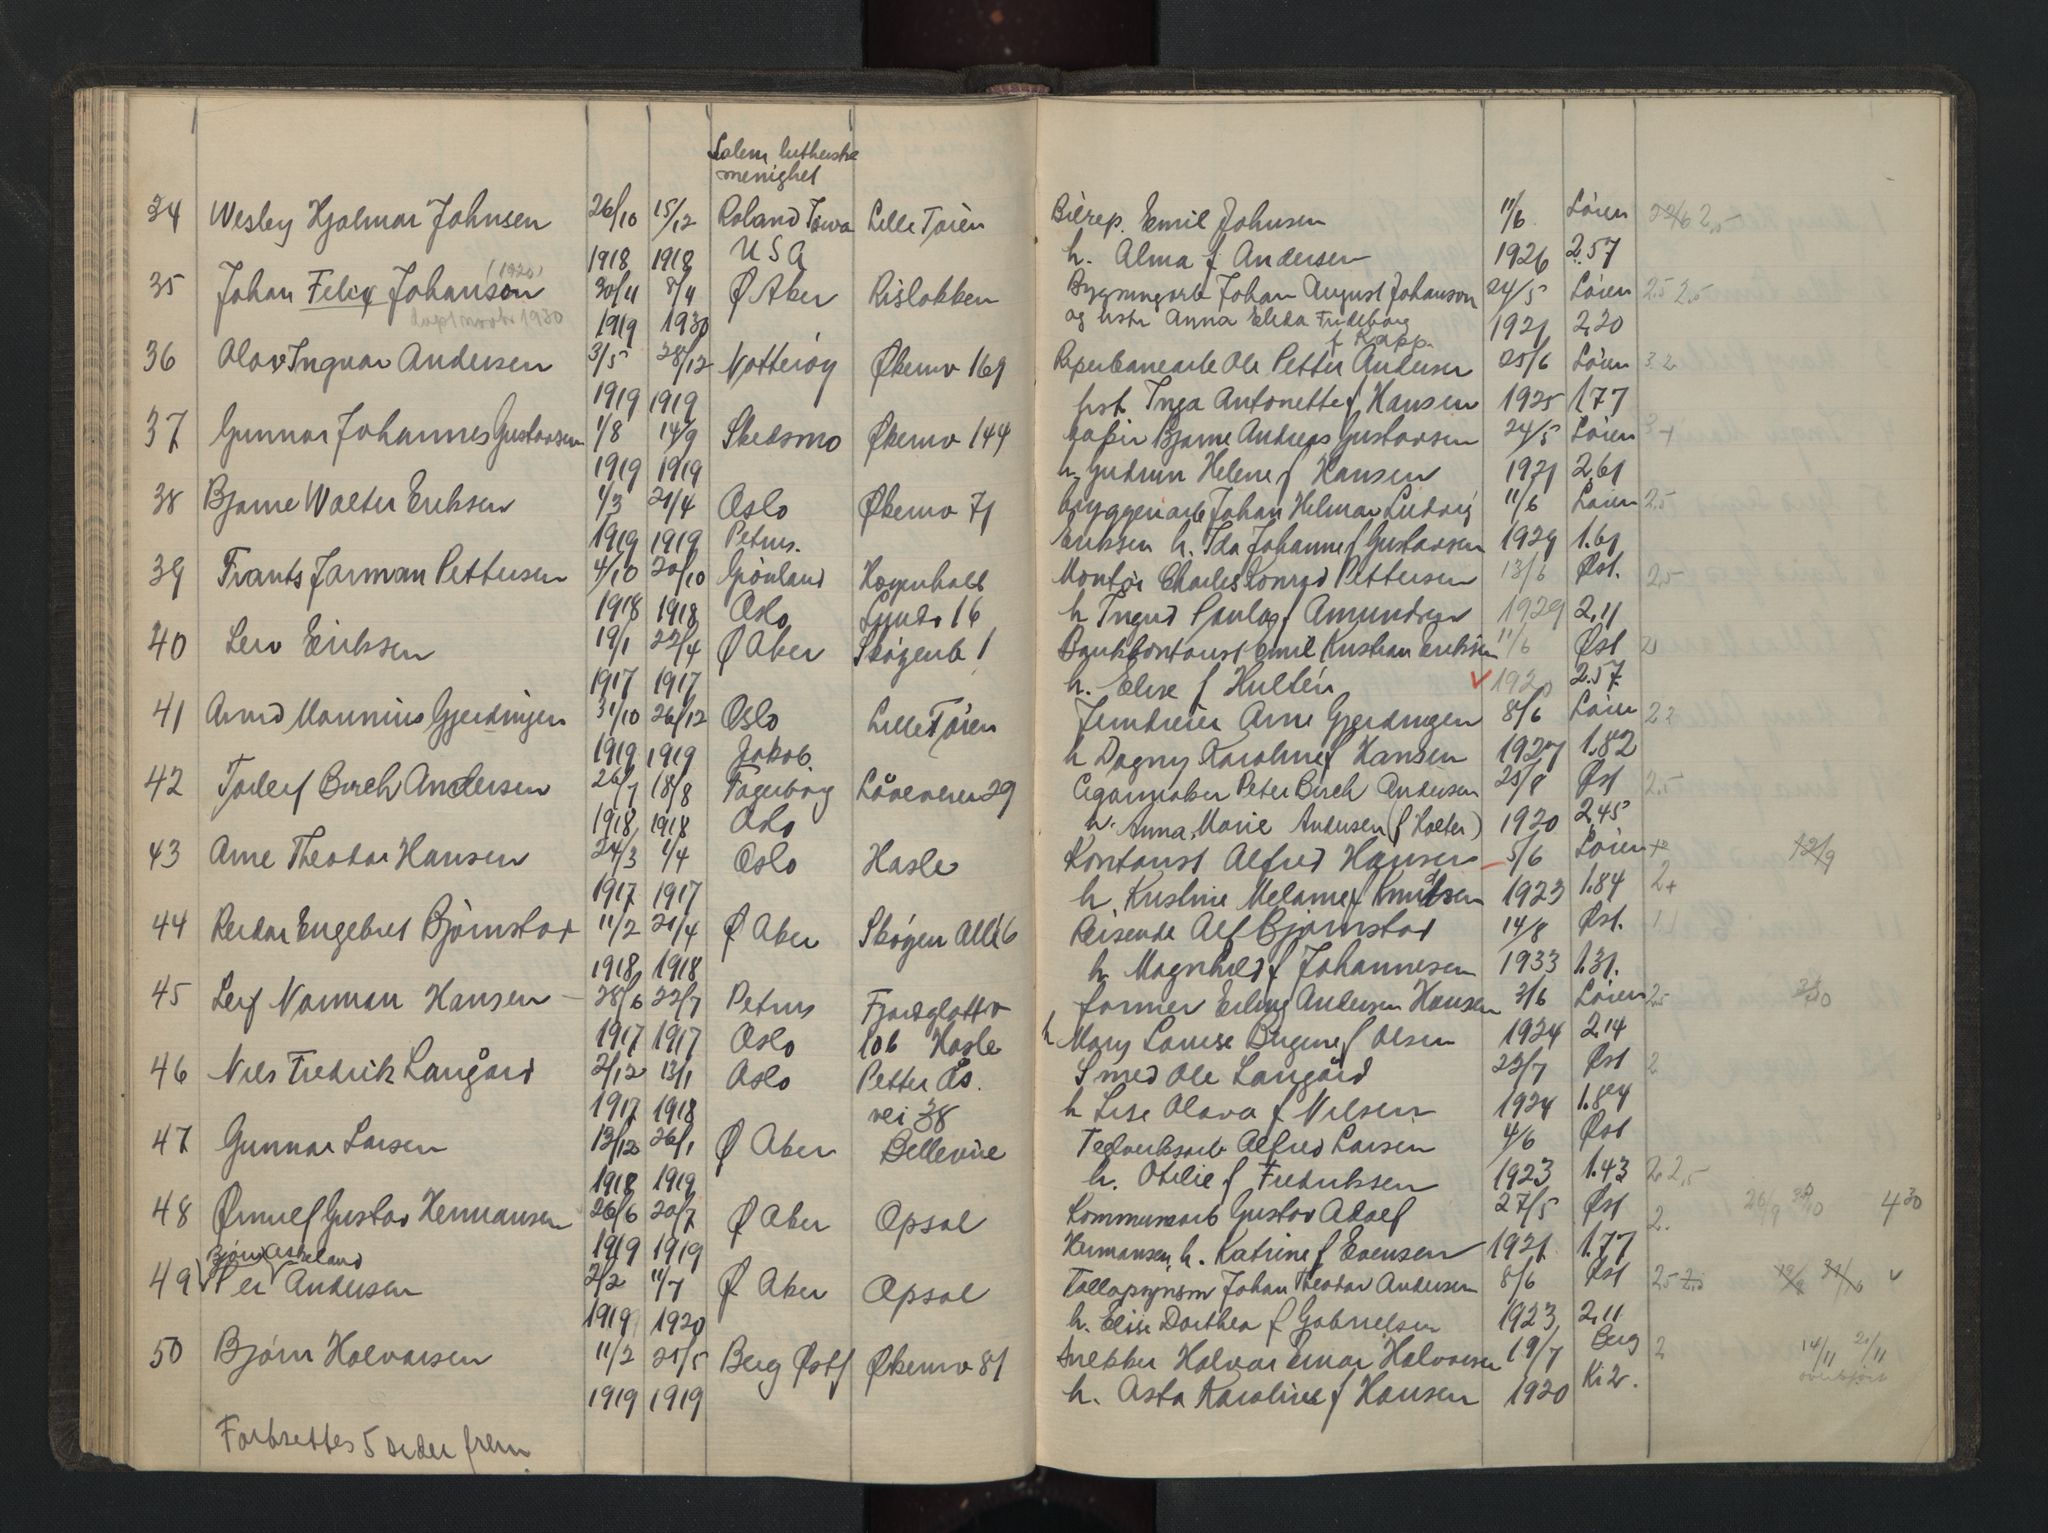 Salem lutherske
menighet
34 Wesley Hjalmar Johnsen 26/10 15/12 Roland Iowa Lille Tøien Bilrep. Emil Johnsen 11/6 Løren 22/6 2,5
1918 1918 USA h. Alma f Andersen 1926 2.57
(1920)
35 Johan Felix Johanson 30/11 8/4 Ø Aker Risløkken Bygningsarb Johan August Johanson 24/5 Løren 2.5 2.5
1930
1919 1930 og hstr Anna Elida Frideborg 1921 2,20
f Kapp.
36 Olav Ingvar Andersen 3/5 28/12 Nøtterøy Økernv 169 Reperbanearb Ole Petter Andersen 25/6 Løren 3.2
1919 1919 hst. Inga Antonette f Hansen 1925 1,77
37 Gunnar Johannes Gustavsen 1/8 14/9 Skedsmo Økernv 144 Bjarne Andreas Gustavsen 24/5 Løren
1919 1919 h Gudrun Helene f Hansen 1921 2,61
38 Bjarne Walter Eriksen 1/3 21/4 Oslo Økernv 71 Bryggeriarb Johan Hilmar Ludvig 11/6 Løren 2.5
1919 1919 Petrus. Eriksen h. Ida Johanne f Gustavsen 1929 1.61
39 Frants Jarman Pettersen 4/10 20/10 Grønland Montør Charles Konrad Pettersen 13/6 Øst. 2.5
1918 1918 Oslo 16 h Ingrid Paula f Amundsen 1929 2,11
40 Leiv Eriksen 19/1 22/4 Ø Aker Skøyenb 1 Bankkontorist Emil Kristian Eriksen 11/6 Øst
1917 1917 h. Elise f Hultén 1920 2.57
41 Arvid Mannius Gjerdingen 31/10 26/12 Oslo Lille Tøien Jerndreier Arne Gjerdingen 8/6 Løren 22
1919 1919 Jakob. h Dagny Karoline f Hansen 1927 1.82
42 Tjodleif Birch Andersen 26/7 18/8 Fagerborg 29 Cigarmaker Peter Birch Andersen 25/8 Øst 2.5
1918 1918 Oslo h. Anna Marie Andersen (f Holter) 1920 2,45
43 Arne Theodor Hansen 24/3 1/4 Oslo Hasle Kontorist Alfred Hansen 5/6 Løren 12/9
1917 1917 h Kristine Melanie f Knudsen 1923 1.84 2+
44 Reidar Engebret Bjørnstad 11/2 21/4 Ø Aker Skøyen Allé 6 Reisende Alf Bjørnstad 14/8 Øst. 1
1918 1918 h Magnhild f Johannesen 1933 1.31.
45 Leif Norman Hansen 28/6 22/7 Petrus Fjordgløttv former Erling Andersen Hansen 3/6 Løren 25 3/10
1917 1917 Oslo 10b Hasle h Mary Louise Birgine f Olsen 1924 2,14
46 Nils Fredrik Langård 2/12 13/1 Oslo Petter Ås. Smed Ole Langård 23/7 Øst 2
1917 1918 vei 38 h Lise Olava f Nilsen 1924 1.84
47 Gunnar Larsen 13/12 26/1 Ø Aker Bellevue Teglverksarb Alfred Larsen 4/6 Øst
1918 1919 h. Otilie f Fredriksen 1923 1.43 2 2,5
48 Ørnulf Gustav Hermansen 26/6 20/7 Ø Aker Opsal Kommunearb Gustav Adolf 27/5 Øst 2. 26/9 3/10 4 30
1919 1919 Hermansen h. Katrine f Evensen 1921 1.77
Bjørn Askeland
49 Per Andersen 2/2 11/7 Ø Aker Opsal Tollopsynsm Johan Theodor Andersen 8/6 Øst 25 2.5 ✓
1919 1920 h. Elise Dorthea f Gabrielsen 1923 2,11
50 Bjørn Halvorsen 11/2 25/5 Berg Østf Økernv 81 Snekker Halvar Einar Halvorsen 19/7 Berg 2 14/11 21/11
1919 1919 h. Asta Karoline f Hansen 1920 Ki 2. overført
Fortsettes 5 sider frem